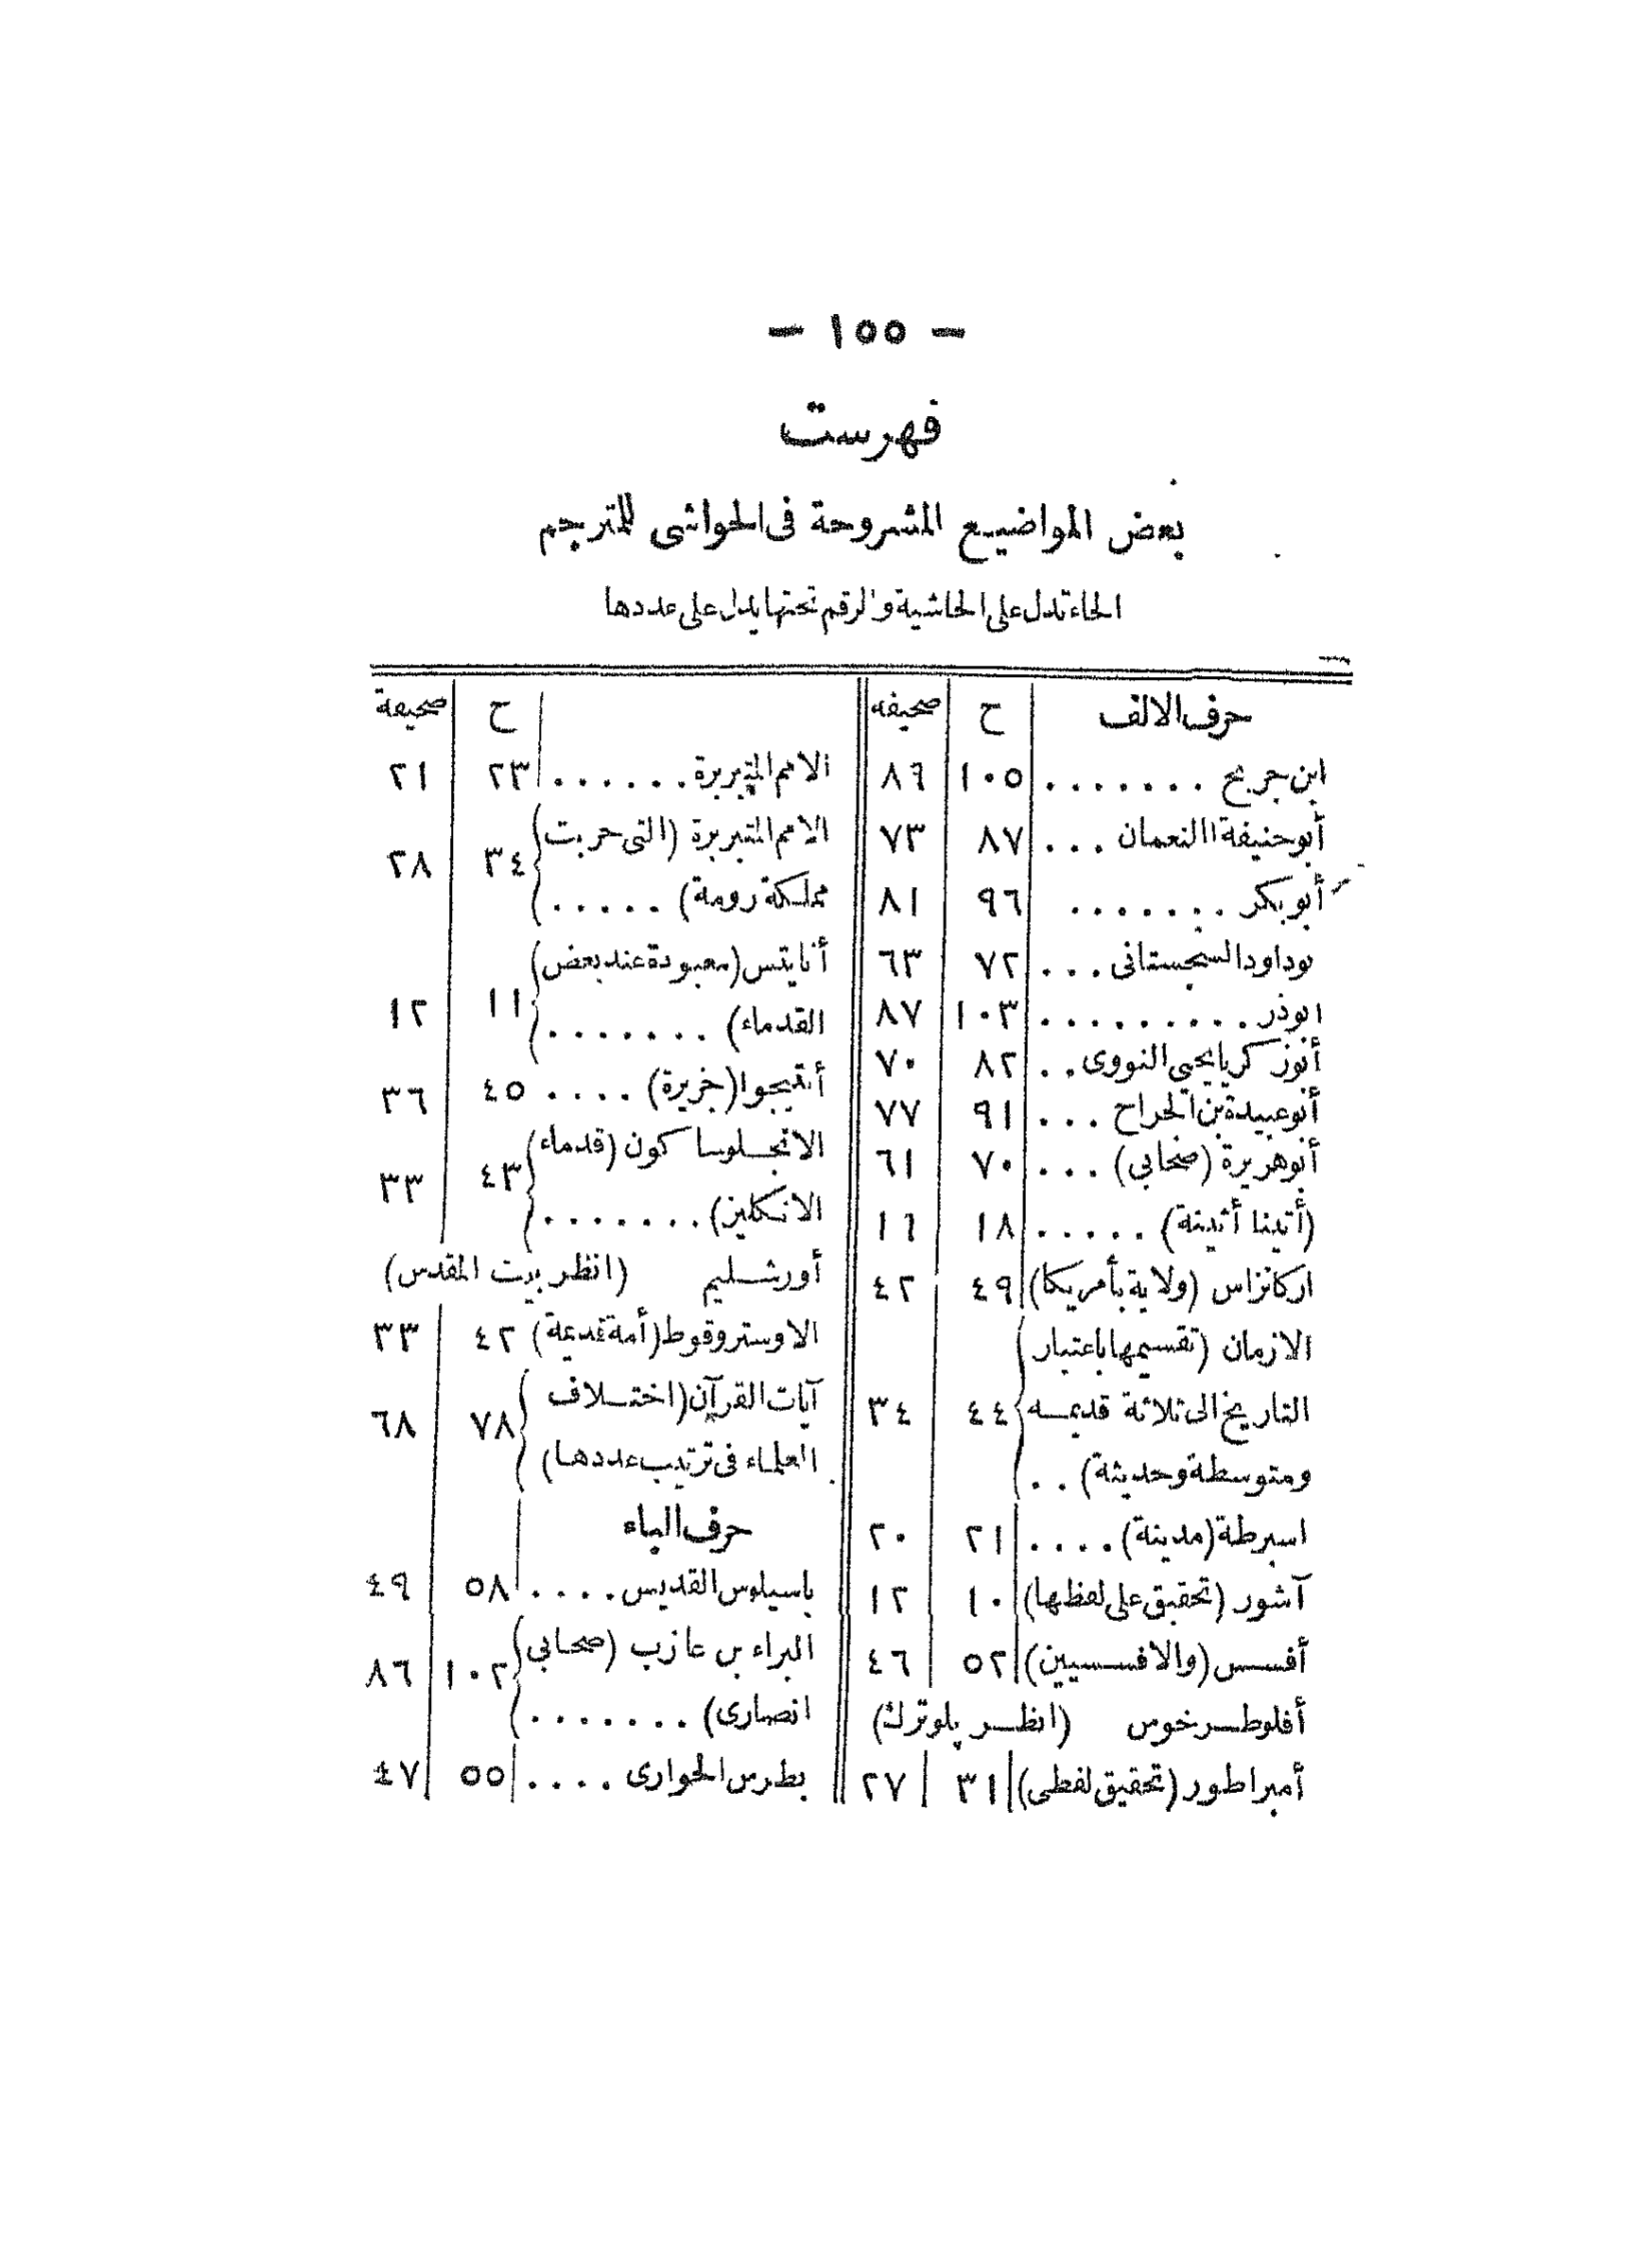 — ١٥٥ —
فهرست
بعض المواضيع المشروحة فى الحواشى للمترجم
الحاء تدل على الحاشية والرقم تحتها يدل على عددها
حرف الالف ح صحيفه
ابن جريج ....... ١٠٥ ٨٦
أبو حنيفة النعمان ... ٨٧ ٧٣
أبو بكر ....... ٩٦ ٨١
بوداود السجستانى ... ٧٢ ٦٣
ابوذر ......... ١٠٣ ٨٧
أبوزكريا يحيى النووى .. ٨٢ ٧٠
أبو عبيدة بن الجراح ... ٩١ ٧٧
أبو هريرة (صحابى) ... ٧٠ ٦١
(أتينا أثينة) ..... ١٨ ١٦
اركانزاس (ولاية بأمريكا) ٤٩ ٤٢
الازمان (تقسيمها باعتبار
التاريخ الى ثلاثة قديمه ٤٤ ٣٤
ومتوسطة وحديثة) ..
اسبرطة (مدينة) .... ٢١ ٢٠
آشور (تحقيق على لفظها) ١٠ ١٢
أفسس (والافسسيين) ٥٢ ٤٦
أفلوطرخوس (انظر پلوترك)
أمبراطور (تحقيق لفظى) ٣١ ٢٧
ح صحيفة
الامم المتبربرة ...... ٢٣ ٢١
الامم المتبربرة (التى حربت
مملكة رومة) ..... ٣٤ ٢٨
أنايتس (معبودة عند بعض
القدماء) ....... ١١ ١٢
أنتيجوا (جزيرة) .... ٤٥ ٣٦
الانجلوساكون (قدماء
الانكليز) ....... ٤٣ ٣٣
أورشليم (انظر بيت المقدس)
الاوستروقوط (أمة قديمة) ٤٢ ٣٣
آيات القرآن (اختلاف
العلماء فى ترتيب عددها) ٧٨ ٦٨
حرف الباء
باسيلوس القديس .... ٥٨ ٤٩
البراء بن عازب (صحابى
انصارى) ....... ١٠٢ ٨٦
بطرس الحوارى .... ٥٥ ٤٧